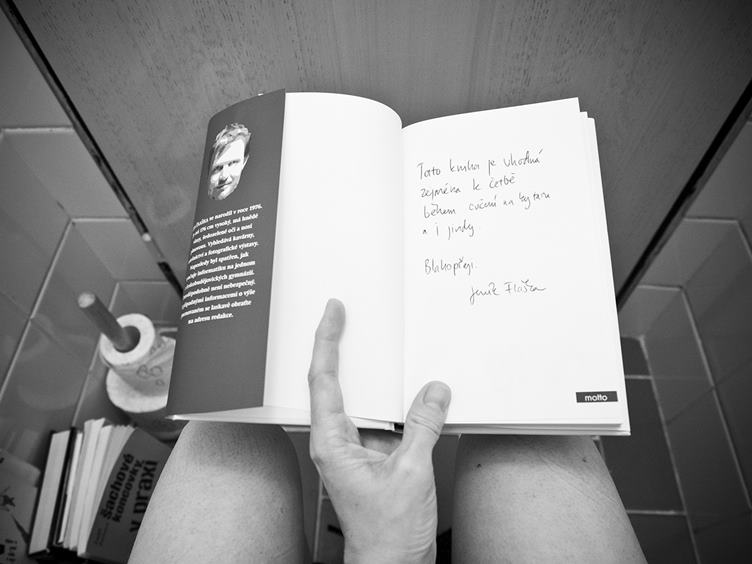 se narodil v roce 1976.
cm vysoký, má hnědé
šedozelené oči a nosí
Vyhledává kavárny,
a fotografické výstavy.
Naposledy byl spatřen, jak
informatiku na jednom
českobudějovických gymnázií.
není nebezpečný.
informacemi o výše
se laskavě obraťte
na adresu redakce.
Tato kniha je vhodná
zejména k četbě
během cvičení na kytaru
a i jindy.
Blahopřeji.
Jeník Fláška
motto
Šachové
koncovky
v praxi